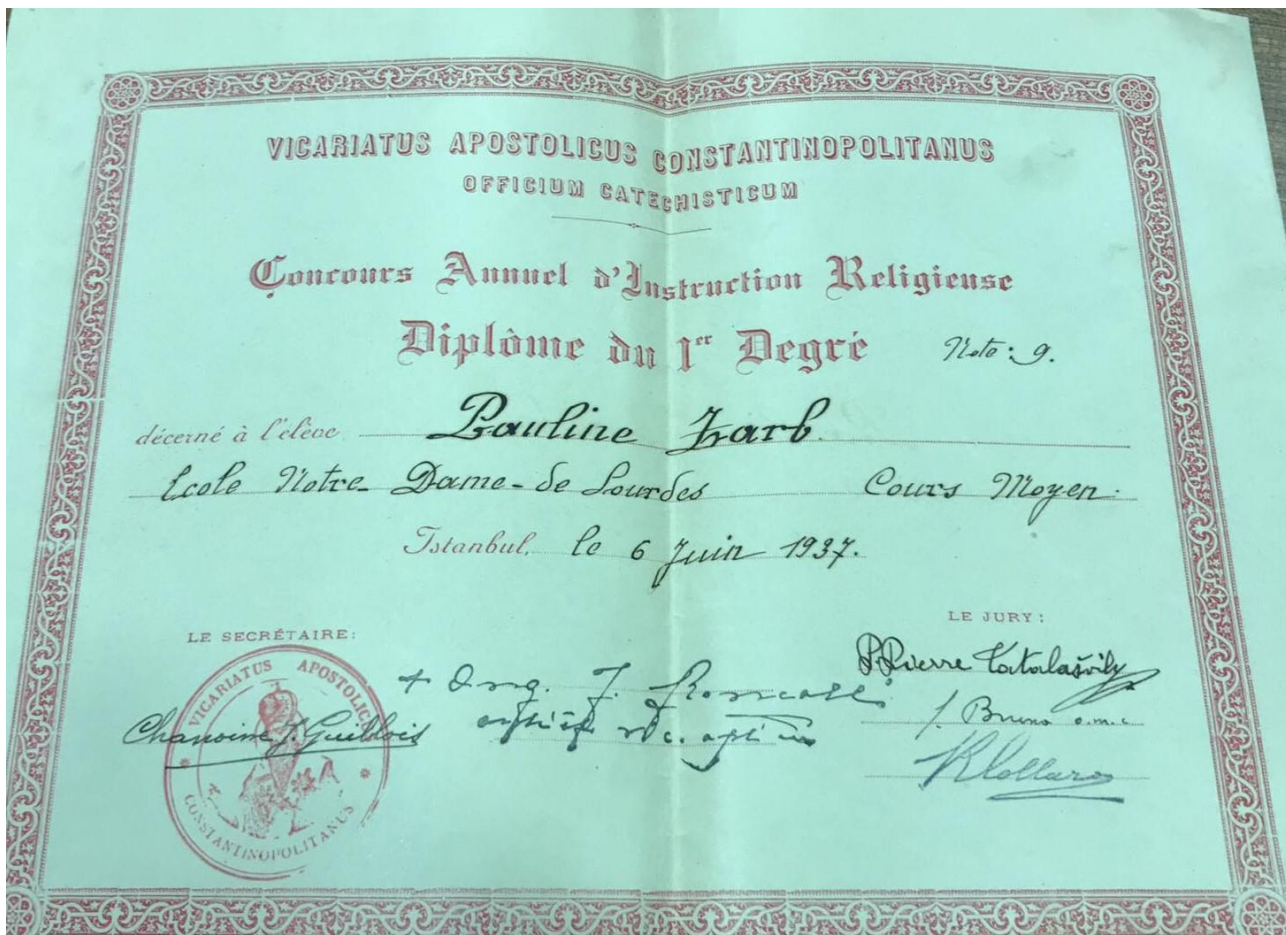 VICARIATUS APOSTOLICUS CONSTANTINOPOLITANUS
OFFICIUM CATECHISTICUM
Concours Annuel d'Instruction Religieuse
Diplôme du 1er Degré Note: 9.
décerné à l'élève Pauline Zarb.
Ecole Notre-Dame-de Lourdes Cours Moyen.
Istanbul, le 6 Juin 1937.
LE SECRÉTAIRE:
LE JURY:
VICARIATUS APOSTOLICUS CONSTANTINOPOLITANUS
Chanoine J. Guillois
+ Ang. J. Roncalli
P. Pierre Tatalašvily
f. Bruno o.m.c.